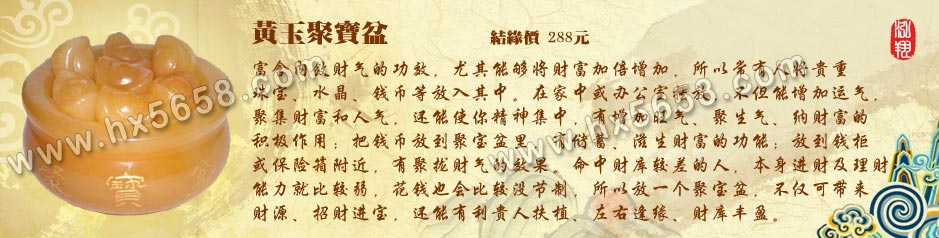 黃玉聚寶盆
結緣價 288元
富含内敛财气的功效，尤其能够将财富加倍增加，所以常有人将贵重
珠宝、水晶、钱币等放入其中。在家中或办公室摆放，不但能增加运气，
聚集财富和人气，还能使你精神集中，有增加旺气、聚生气、纳财富的
积极作用；把钱币放到聚宝盆里，有储蓄、滋生财富的功能；放到钱柜
或保险箱附近，有聚拢财气的效果。命中财库较差的人，本身进财及理财
能力就比较弱，花钱也会比较没节制，所以放一个聚宝盆，不仅可带来
财源、招财进宝，还能有利贵人扶植，左右逢缘、财库丰盈。
寶
www.hx5658.com
www.hx5658.com